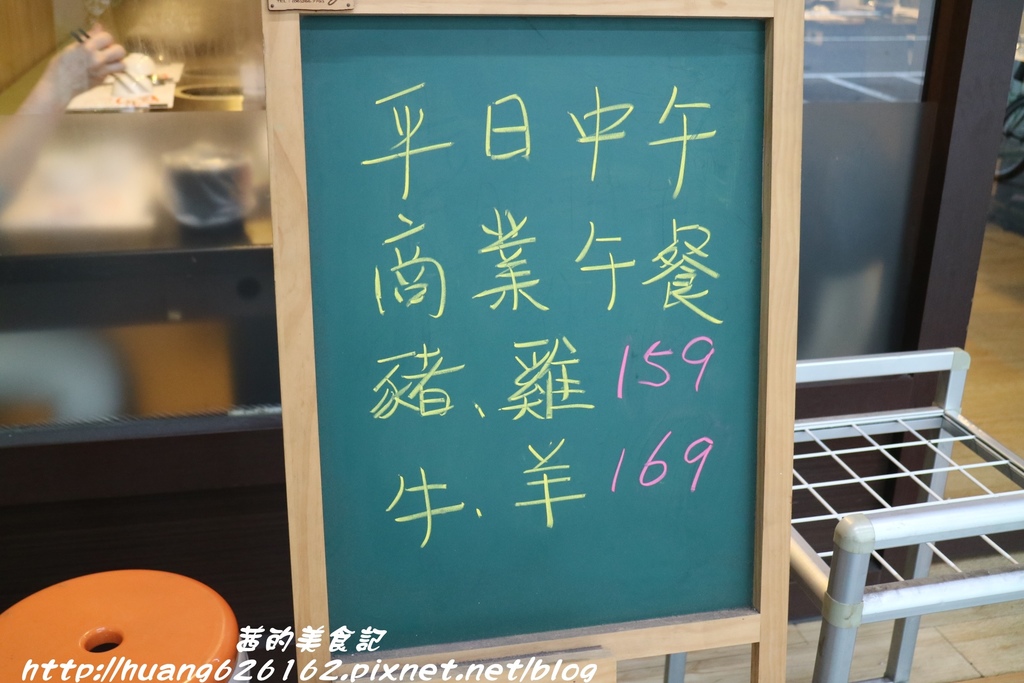 平日中午
商業午餐
豬、雞 159
牛、羊 169
茜的美食記
http://huang626162.pixnet.net/blog